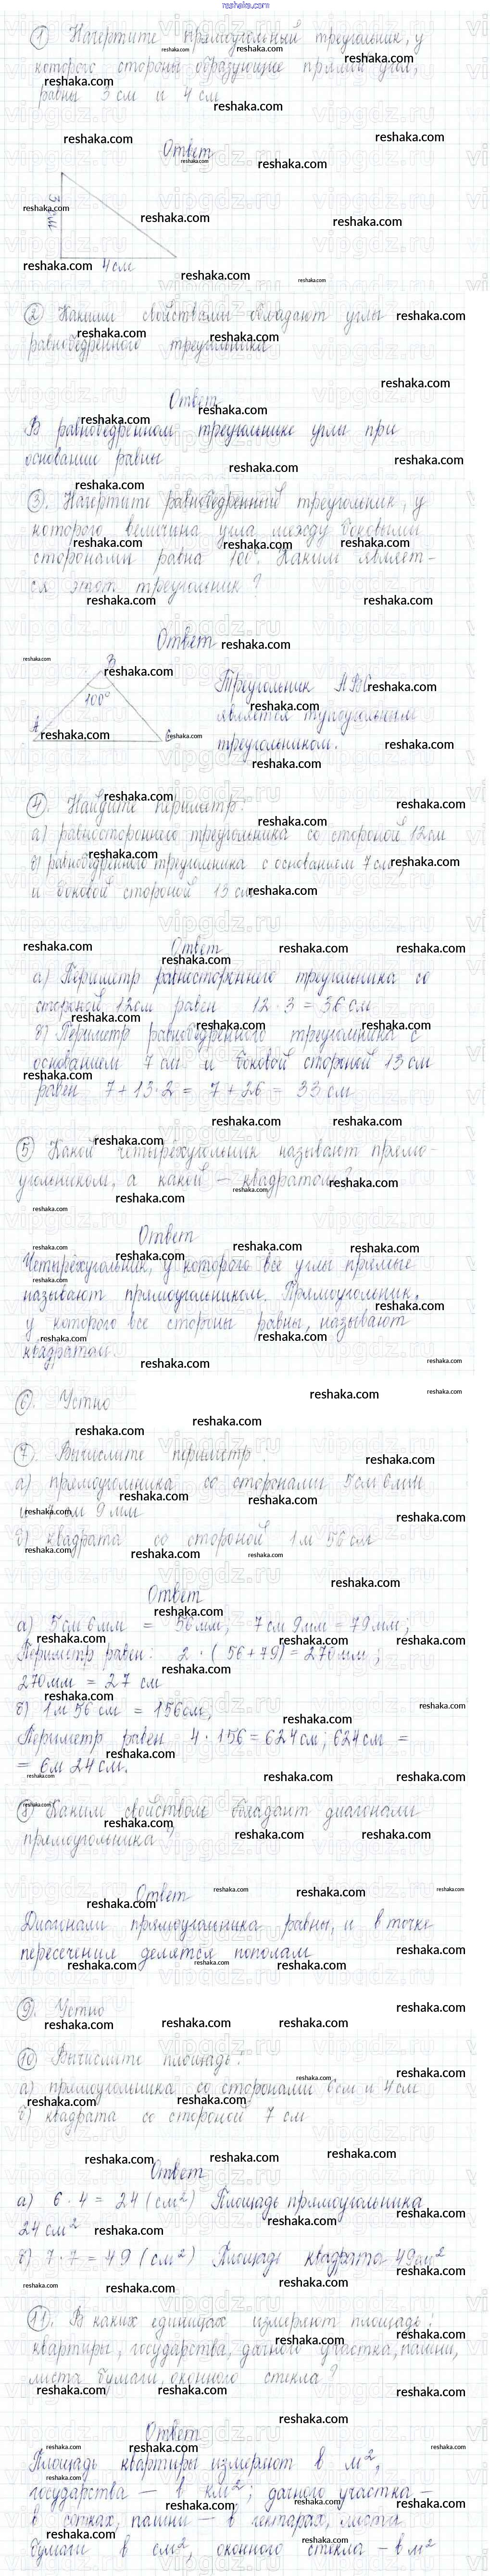 reshaka.com
① Начертите прямоугольный треугольник, у
которого стороны образующие прямой угол,
равны 3 см и 4 см
Ответ
3 см
4 см
② Какими свойствами обладают углы
равнобедренного треугольника
Ответ
В равнобедренном треугольнике углы при
основании равны
③. Начертите равнобедренный треугольник, у
которого величина угла между боковыми
сторонами равна 100° Каким являет-
ся этот треугольник?
Ответ
B
100°
A
C
Треугольник ABC
является тупоугольным
треугольником.
④. Найдите периметр:
а) равностороннего треугольника со стороной 12 см
б) равнобедренного треугольника с основанием 7 см
и боковой стороной 13 см
Ответ
а) Периметр равностороннего треугольника со
стороной 12см равен 12 · 3 = 36 см
б) Периметр равнобедренного треугольника с
основанием 7 см и боковой стороной 13 см
равен 7 + 13 · 2 = 7 + 26 = 33 см
⑤ Какой четырёхугольник называют прямо-
угольником, а какой – квадратом?
Ответ
Четырёхугольник, у которого все углы прямые
называют прямоугольником. Прямоугольник,
у которого все стороны равны, называют
квадратом.
⑥. Устно
⑦. Вычислите периметр:
а) прямоугольника со сторонами 5см 6мм
и 7см 9мм
б) квадрата со стороной 1м 56 см
Ответ
а) 5см 6мм = 56мм; 7см 9мм = 79мм;
Периметр равен: 2 · (56+79) = 270мм;
270мм = 27 см
б) 1м 56 см = 156см;
Периметр равен 4 · 156 = 624см; 624см =
= 6м 24 см.
⑧ Каким свойством обладают диагонали
прямоугольника?
Ответ
Диагонали прямоугольника равны, и в точке
пересечения делятся пополам
⑨. Устно
⑩ Вычислите площадь:
а) прямоугольника со сторонами 6см и 4см
б) квадрата со стороной 7 см
Ответ
а) 6 · 4 = 24 (см²) Площадь прямоугольника
24 см²
б) 7 · 7 = 49 (см²) Площадь квадрата 49см²
⑪. В каких единицах измеряют площадь:
квартиры, государства, дачного участка, пашни,
листа бумаги, оконного стекла?
Ответ
Площадь квартиры измеряют в м²,
государства – в км²; дачного участка –
в сотках, пашни – в гектарах, листа
бумаги в см², оконного стекла – в м²